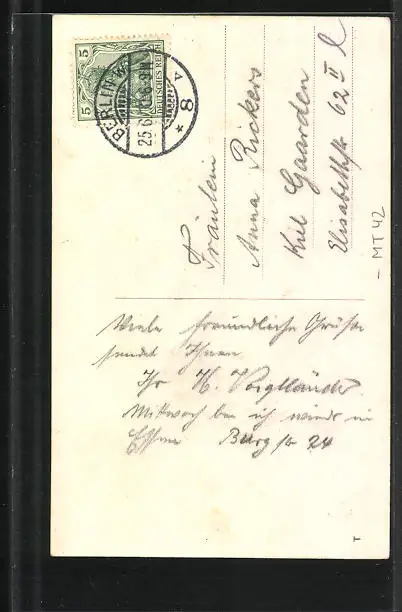 5
5
DEUTSCHES REICH
BERLIN W.
25.6.
* 8 v
Fräulein
Anna Rickers
Kiel Gaarden
Elisabethstr 62 II l
Viele freundliche Grüße
sendet Ihnen
Ihr H. Voigtländer.
Mittwoch bin ich wieder in
Essen Burgstr 24
- MT 42
T